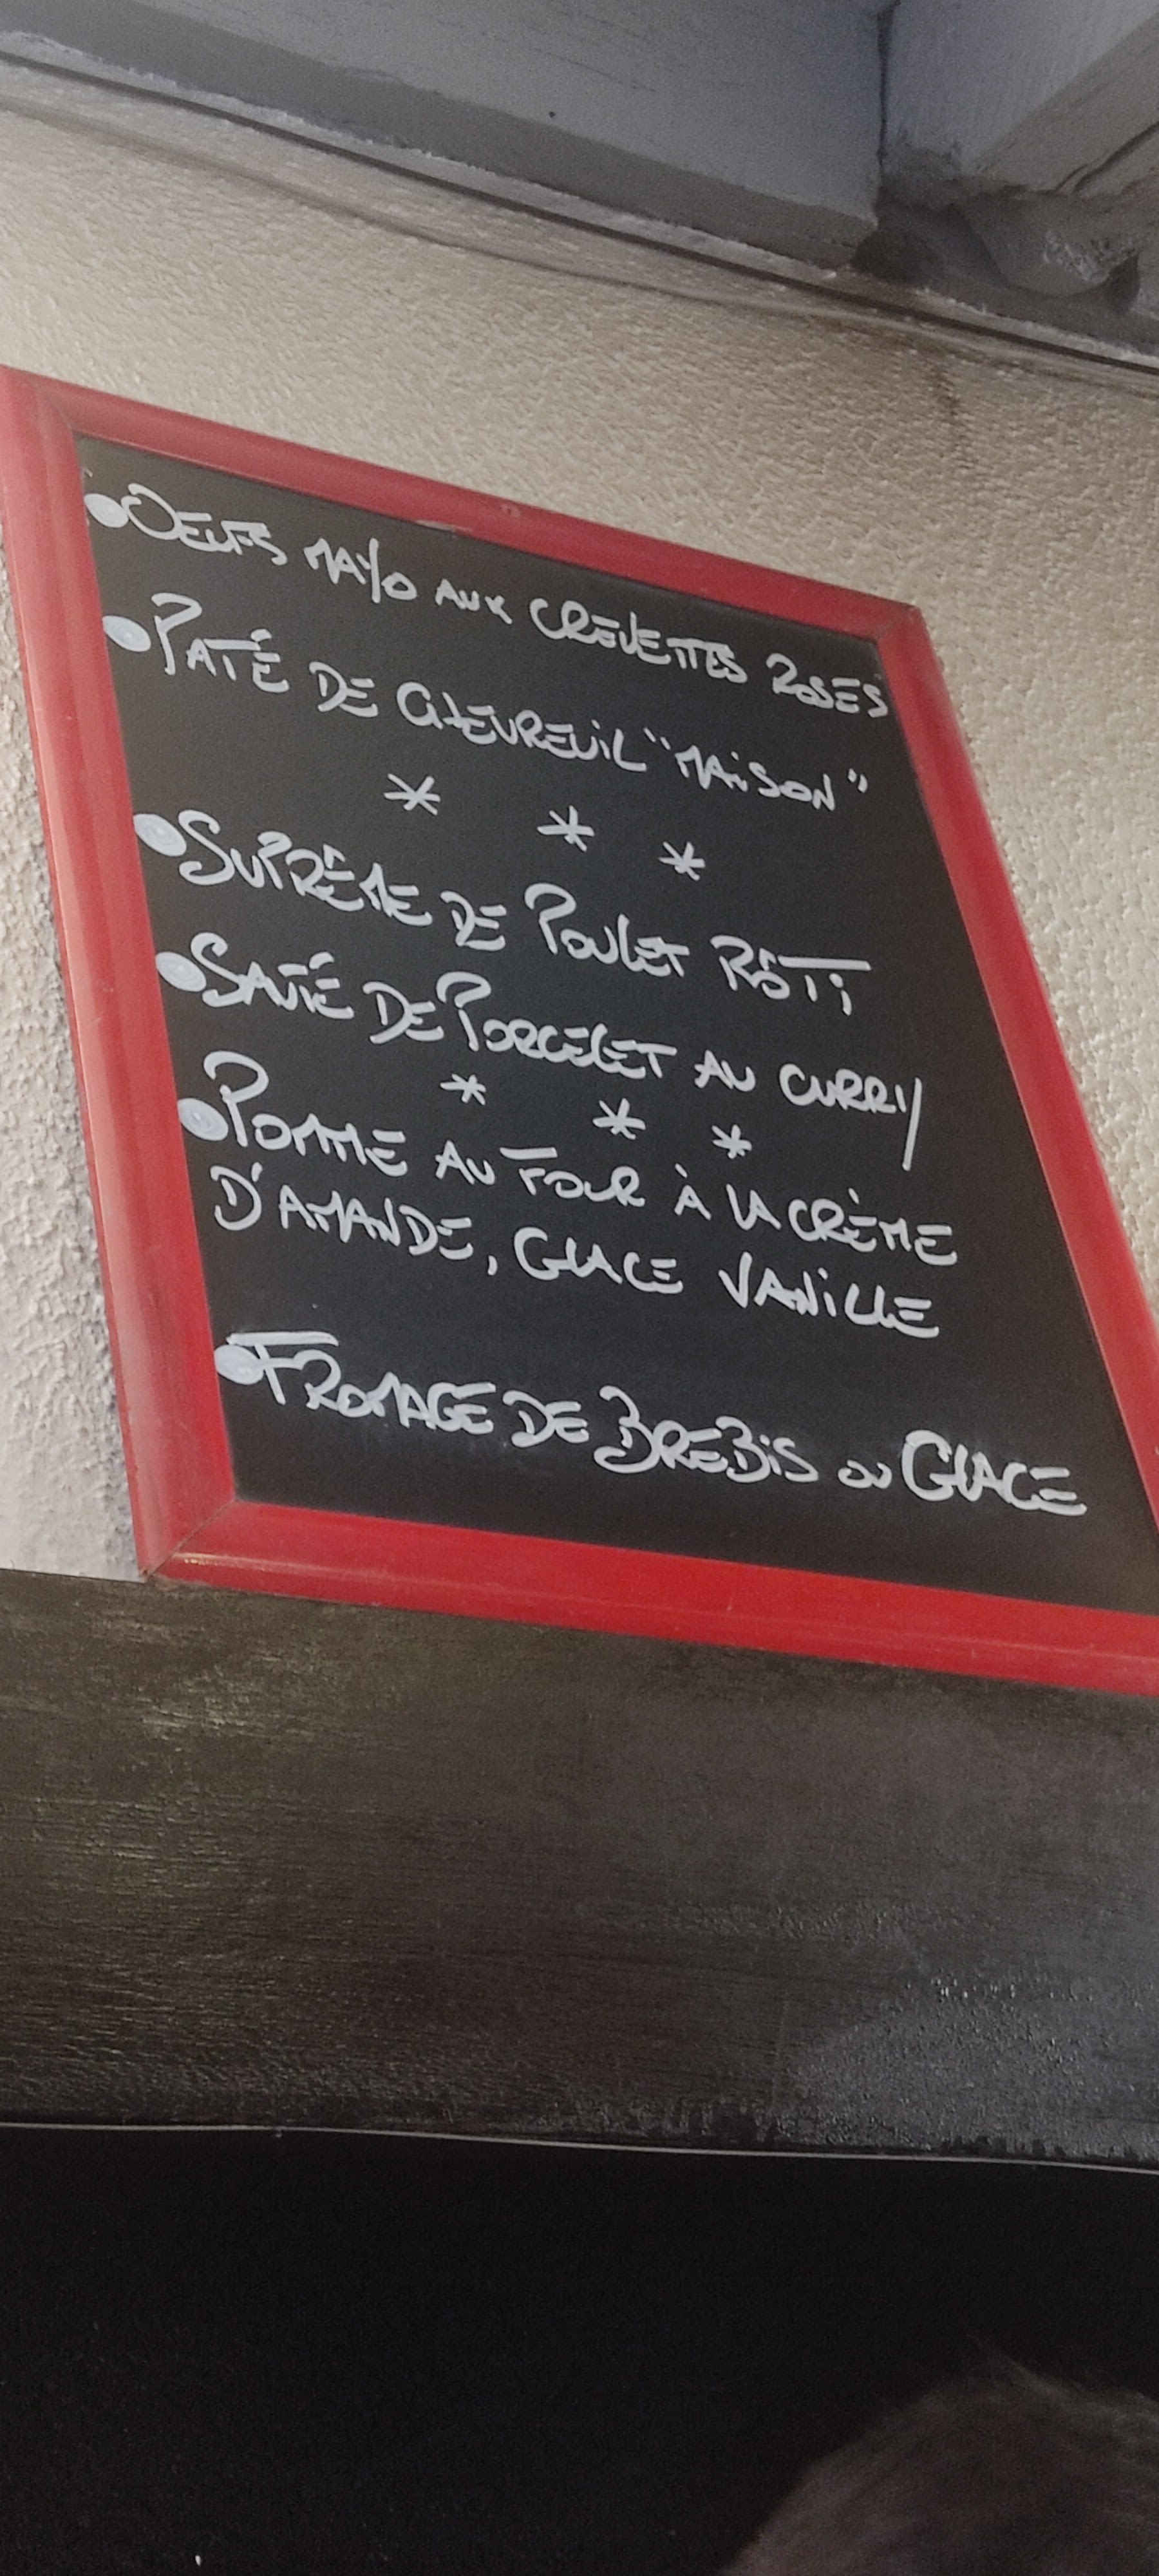 • OEUFS MAYO AUX CREVETTES ROSES
• PATÉ DE CHEVREUIL "MAISON"
* * *
• SUPRÊME DE POULET RÔTI
• SATÉ DE PORCELET AU CURRY
* * *
• POMME AU FOUR À LA CRÈME
D'AMANDE, GLACE VANILLE
• FROMAGE DE BREBIS OU GLACE